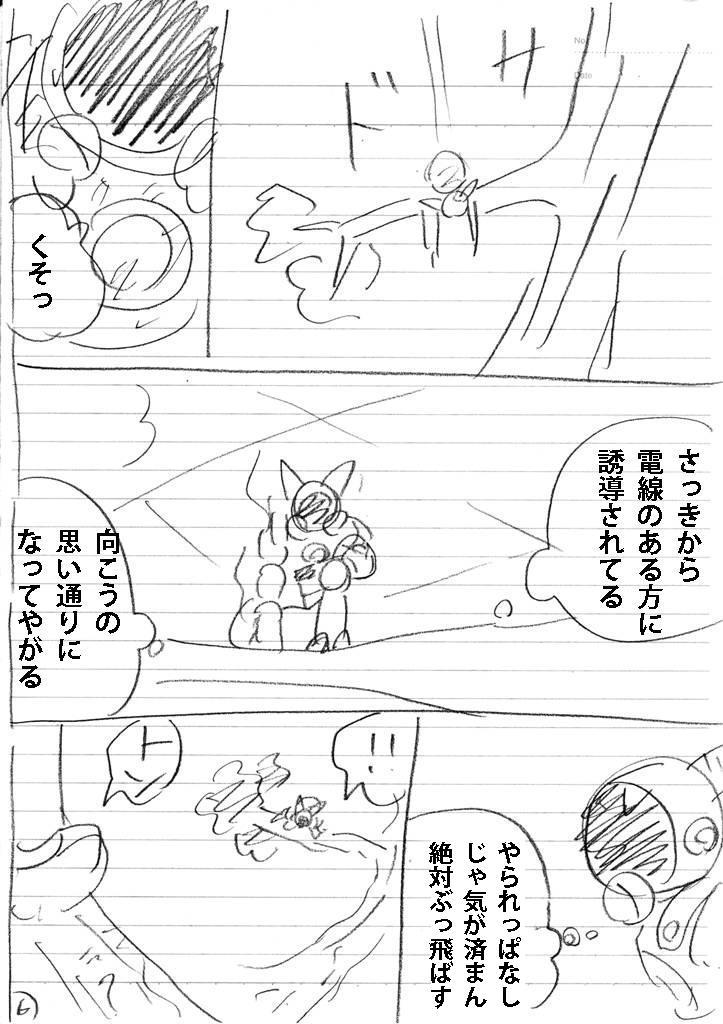 No.
Date
ドサ
くそっ
さっきから
電線のある方に
誘導されてる
向こうの
思い通りに
なってやがる
やられっぱなし
じゃ気が済まん
絶対ぶっ飛ばす
!!
トン
6